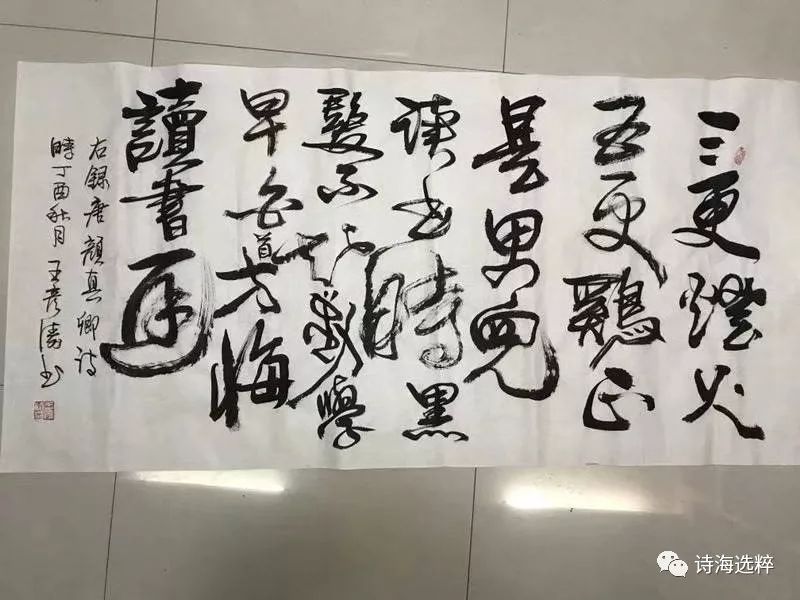 三更燈火
五更鷄正
是男兒
读书時黑
髮不知勤學
早白首方悔
讀書遲
右録唐顔真卿诗
時丁酉秋月王彦涛书
诗海选粹